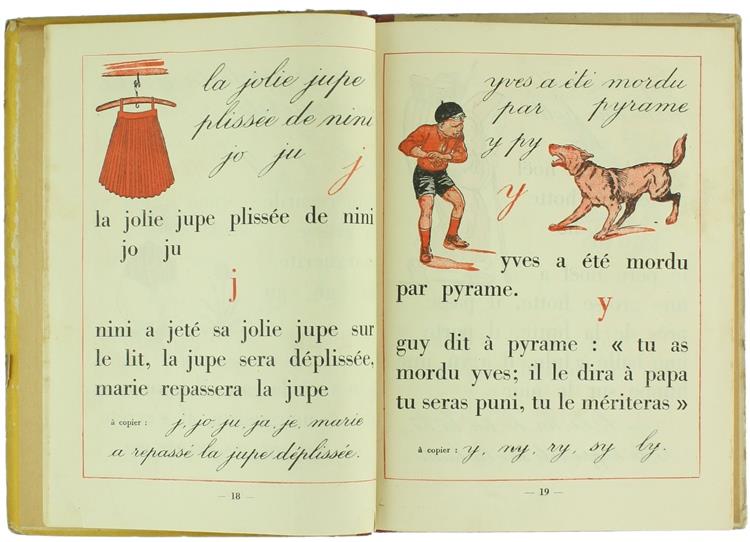 la jolie jupe
plissée de nini
jo ju
j
la jolie jupe plissée de nini
jo ju
j
nini a jeté sa jolie jupe sur
le lit, la jupe sera déplissée,
marie repassera la jupe
à copier : j, jo, ju, ja, je, marie
a repassé la jupe déplissée.
— 18 —
yves a été mordu
par pyrame
y py
y
yves a été mordu
par pyrame.
y
guy dit à pyrame : « tu as
mordu yves; il le dira à papa
tu seras puni, tu le mériteras »
à copier : y, ny, ry, sy ly.
— 19 —